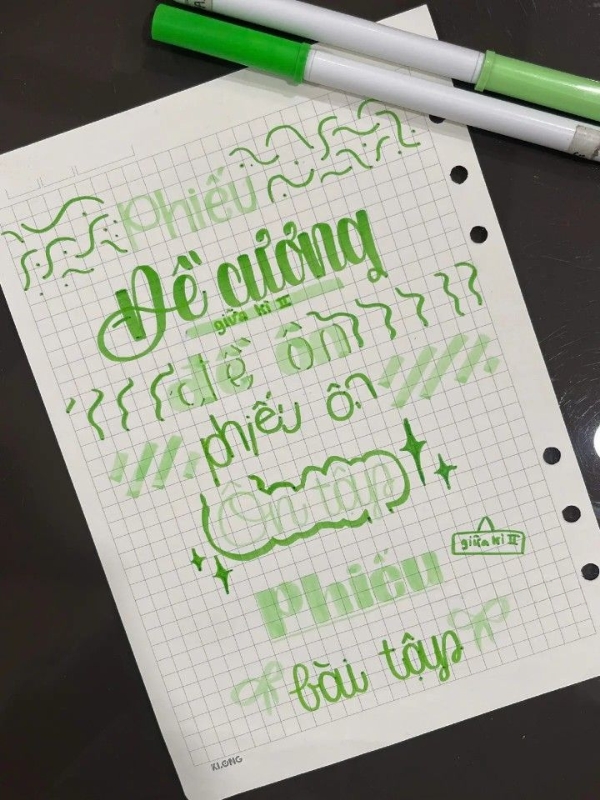 Phiếu
Đề cương
giữa kì II
đề ôn
phiếu ôn
Ôn tập
giữa kì II
Phiếu
bài tập
KLONG